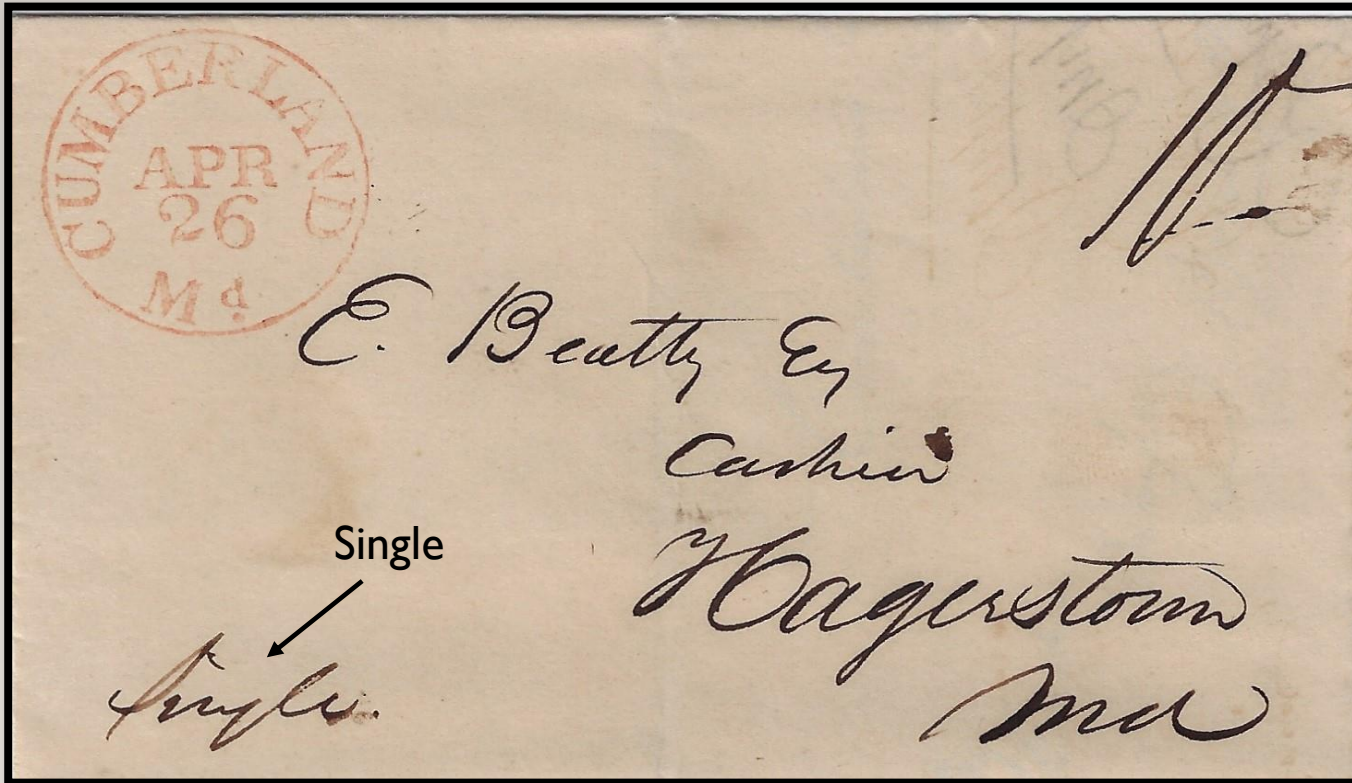 CUMBERLAND
APR
26
Md
10
E. Beatty Esq
Cashier
Hagerstown
Md
Single
Single